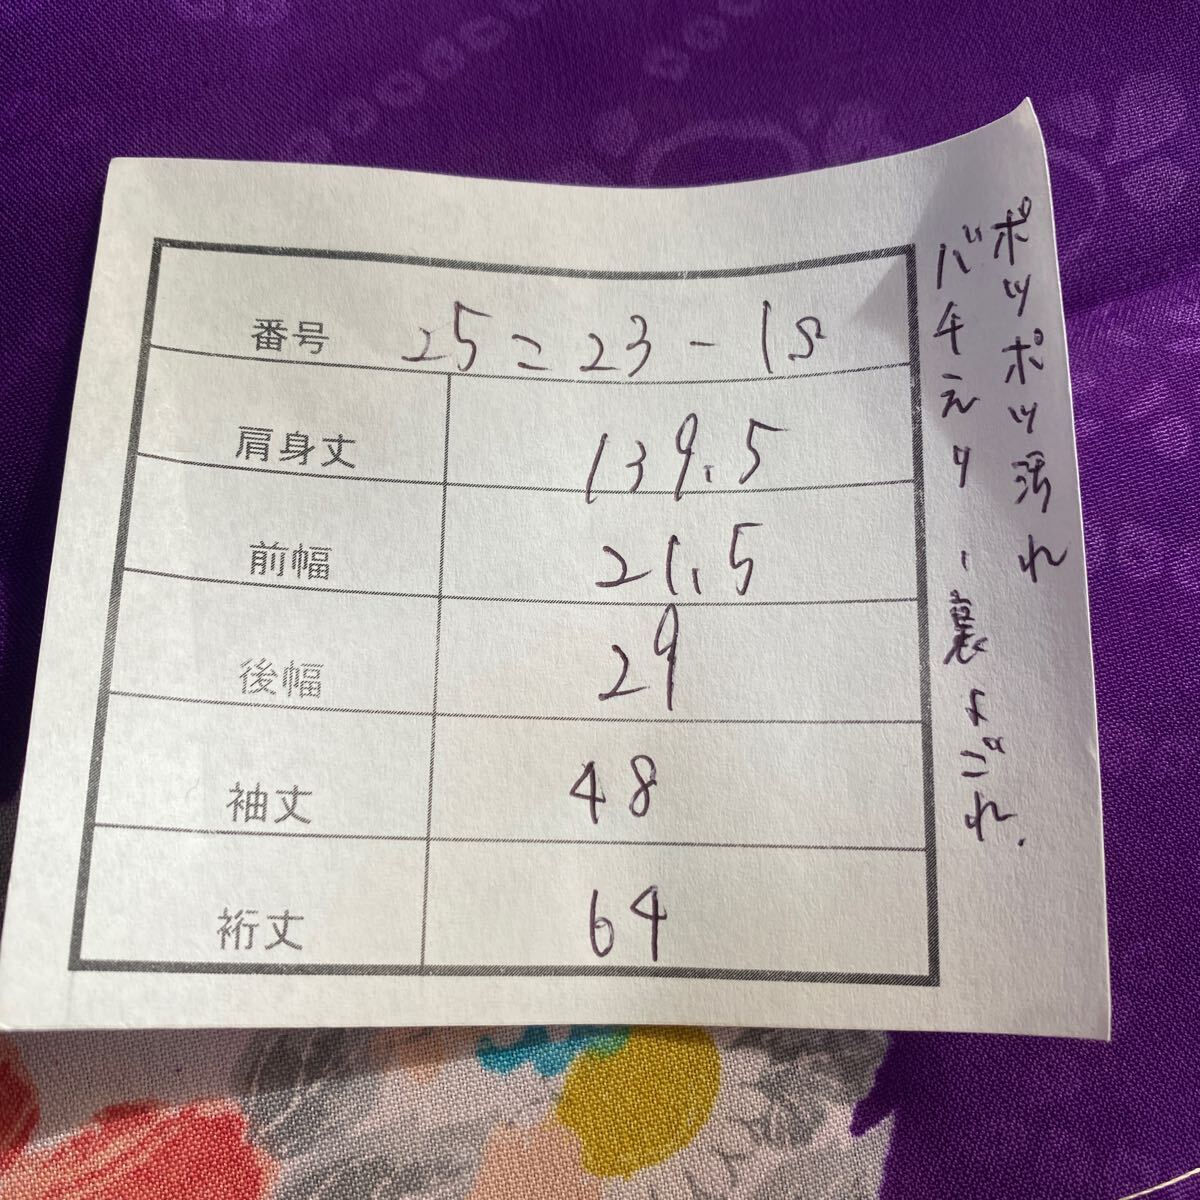 番号 25ニ23-18
肩身丈 139.5
前幅 21.5
後幅 29
袖丈 48
裄丈 64
ポツポツ汚れ
バチえり、裏よごれ.